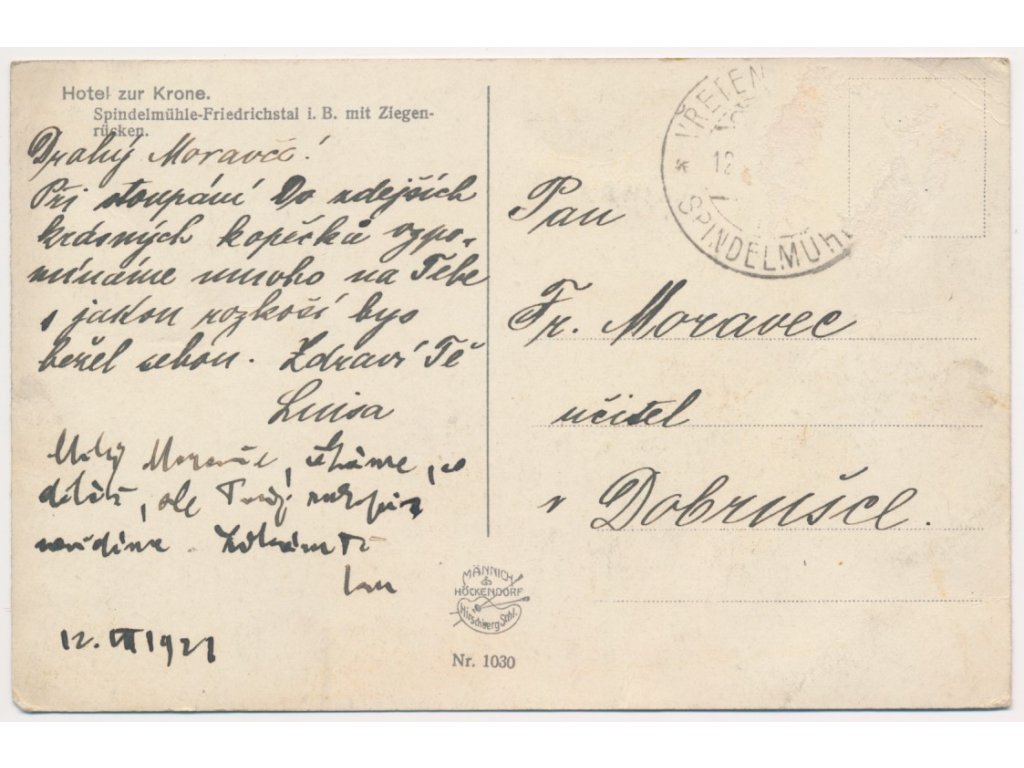 Hotel zur Krone.
Spindelmühle-Friedrichstal i. B. mit Ziegen-
rücken.
Drahý Moravče!
Při stoupání do zdejších
krásných kopečků vzpo-
mínáme mnoho na Tebe
s jakou rozkoší bys
běžel sebou. Zdraví Tě
Luisa
Milý Moravče,
ale Tvůj
12. VII 1921
VŘETEN
12
SPINDELMÜH
Pan
Fr. Moravec
učitel
v Dobrušce.
MÄNNICH
&
HÖCKENDORF
Hirschberg Schl.
Nr. 1030